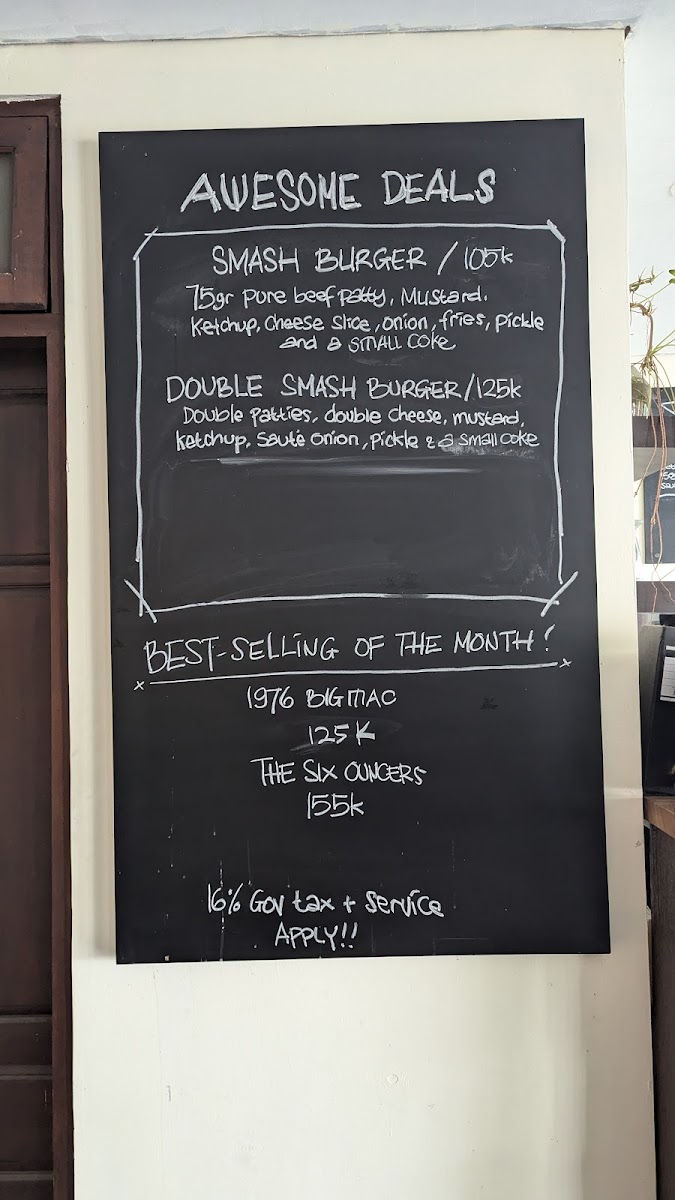 AWESOME DEALS
SMASH BURGER / 105k
75gr pure beef patty, Mustard.
Ketchup, Cheese Slice, onion, fries, pickle
and a SMALL Coke
DOUBLE SMASH BURGER/125k
Double patties, double cheese, mustard,
ketchup, Sautè onion, pickle & a small coke
BEST-SELLING OF THE MONTH!
1976 BIGMAC
125K
THE SIX OUNCERS
155k
16% Gov tax + Service
APPLY!!